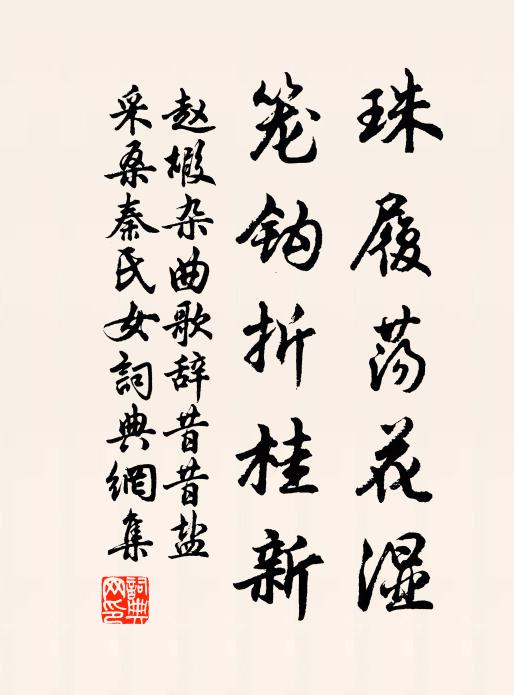 珠履荡花湿
笼钩折桂新
赵嘏杂曲歌辞昔昔盐
采桑秦氏女詞典網集
詞典网印